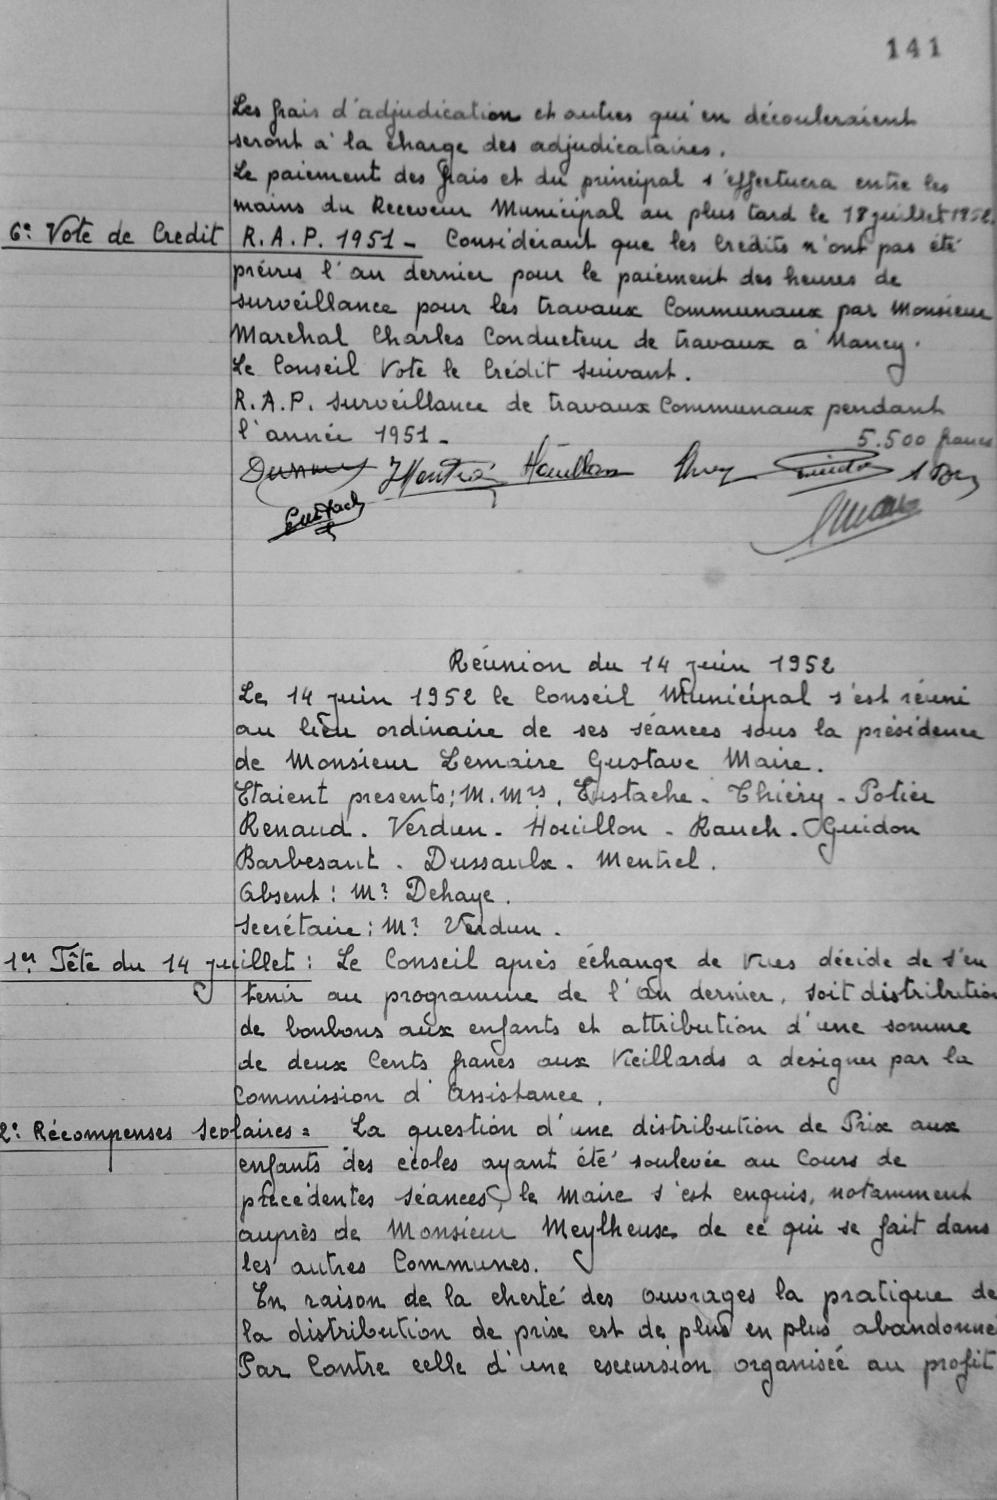 141
Les frais d'adjudication et autres qui en découleraient
seront à la charge des adjudicataires.
Le paiement des frais et du principal s'effectuera entre les
mains du Receveur Municipal au plus tard le 18 juillet 1952.
6e Vote de Credit R.A.P. 1951 - Considérant que les Crédits n'ont pas été
prévus l'an dernier pour le paiement des heures de
surveillance pour les travaux Communaux par Monsieur
Marchal Charles Conducteur de travaux à Nancy.
Le Conseil Vote le Crédit suivant.
R.A.P. surveillance de travaux Communaux pendant
l'année 1951 - 5.500 francs
Eustach
Réunion du 14 juin 1952
Le 14 juin 1952 le Conseil Municipal s'est réuni
au lieu ordinaire de ses séances sous la présidence
de Monsieur Lemaire Gustave Maire.
Etaient presents: M.Mrs. Eustache - Thiéry - Potier
Renaud - Verdun - Houillon - Rauch - Guidon
Barbesant - Dussaulx - Mentrel.
Absent: Mr Dehaye.
Secrétaire: Mr Verdun.
1er Fête du 14 juillet: Le Conseil après échange de vues décide de s'en
tenir au programme de l'an dernier, soit distribution
de bonbons aux enfants et attribution d'une somme
de deux Cents francs aux Vieillards a designer par la
Commission d'Assistance.
2e Récompenses Scolaires = La question d'une distribution de Prix aux
enfants des écoles ayant été soulevée au Cours de
précédentes séances, le Maire s'est enquis, notamment
auprès de Monsieur Meylheux de ce qui se fait dans
les autres Communes.
En raison de la cherté des ouvrages la pratique de
la distribution de prise est de plus en plus abandonne
Par Contre celle d'une escursion organisée au profit